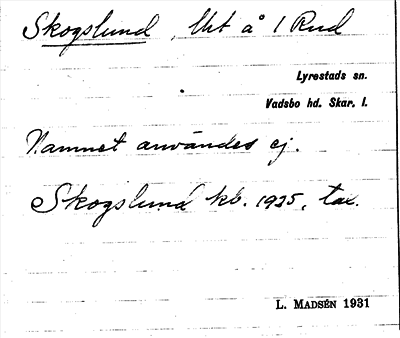 Skogslund, Uht å 1 Rud
Lyrestads sn.
Vadsbo hd. Skar. l.
Namnet användes ej.
Skogslund kb. 1925, tax.
L. MADSÉN 1931